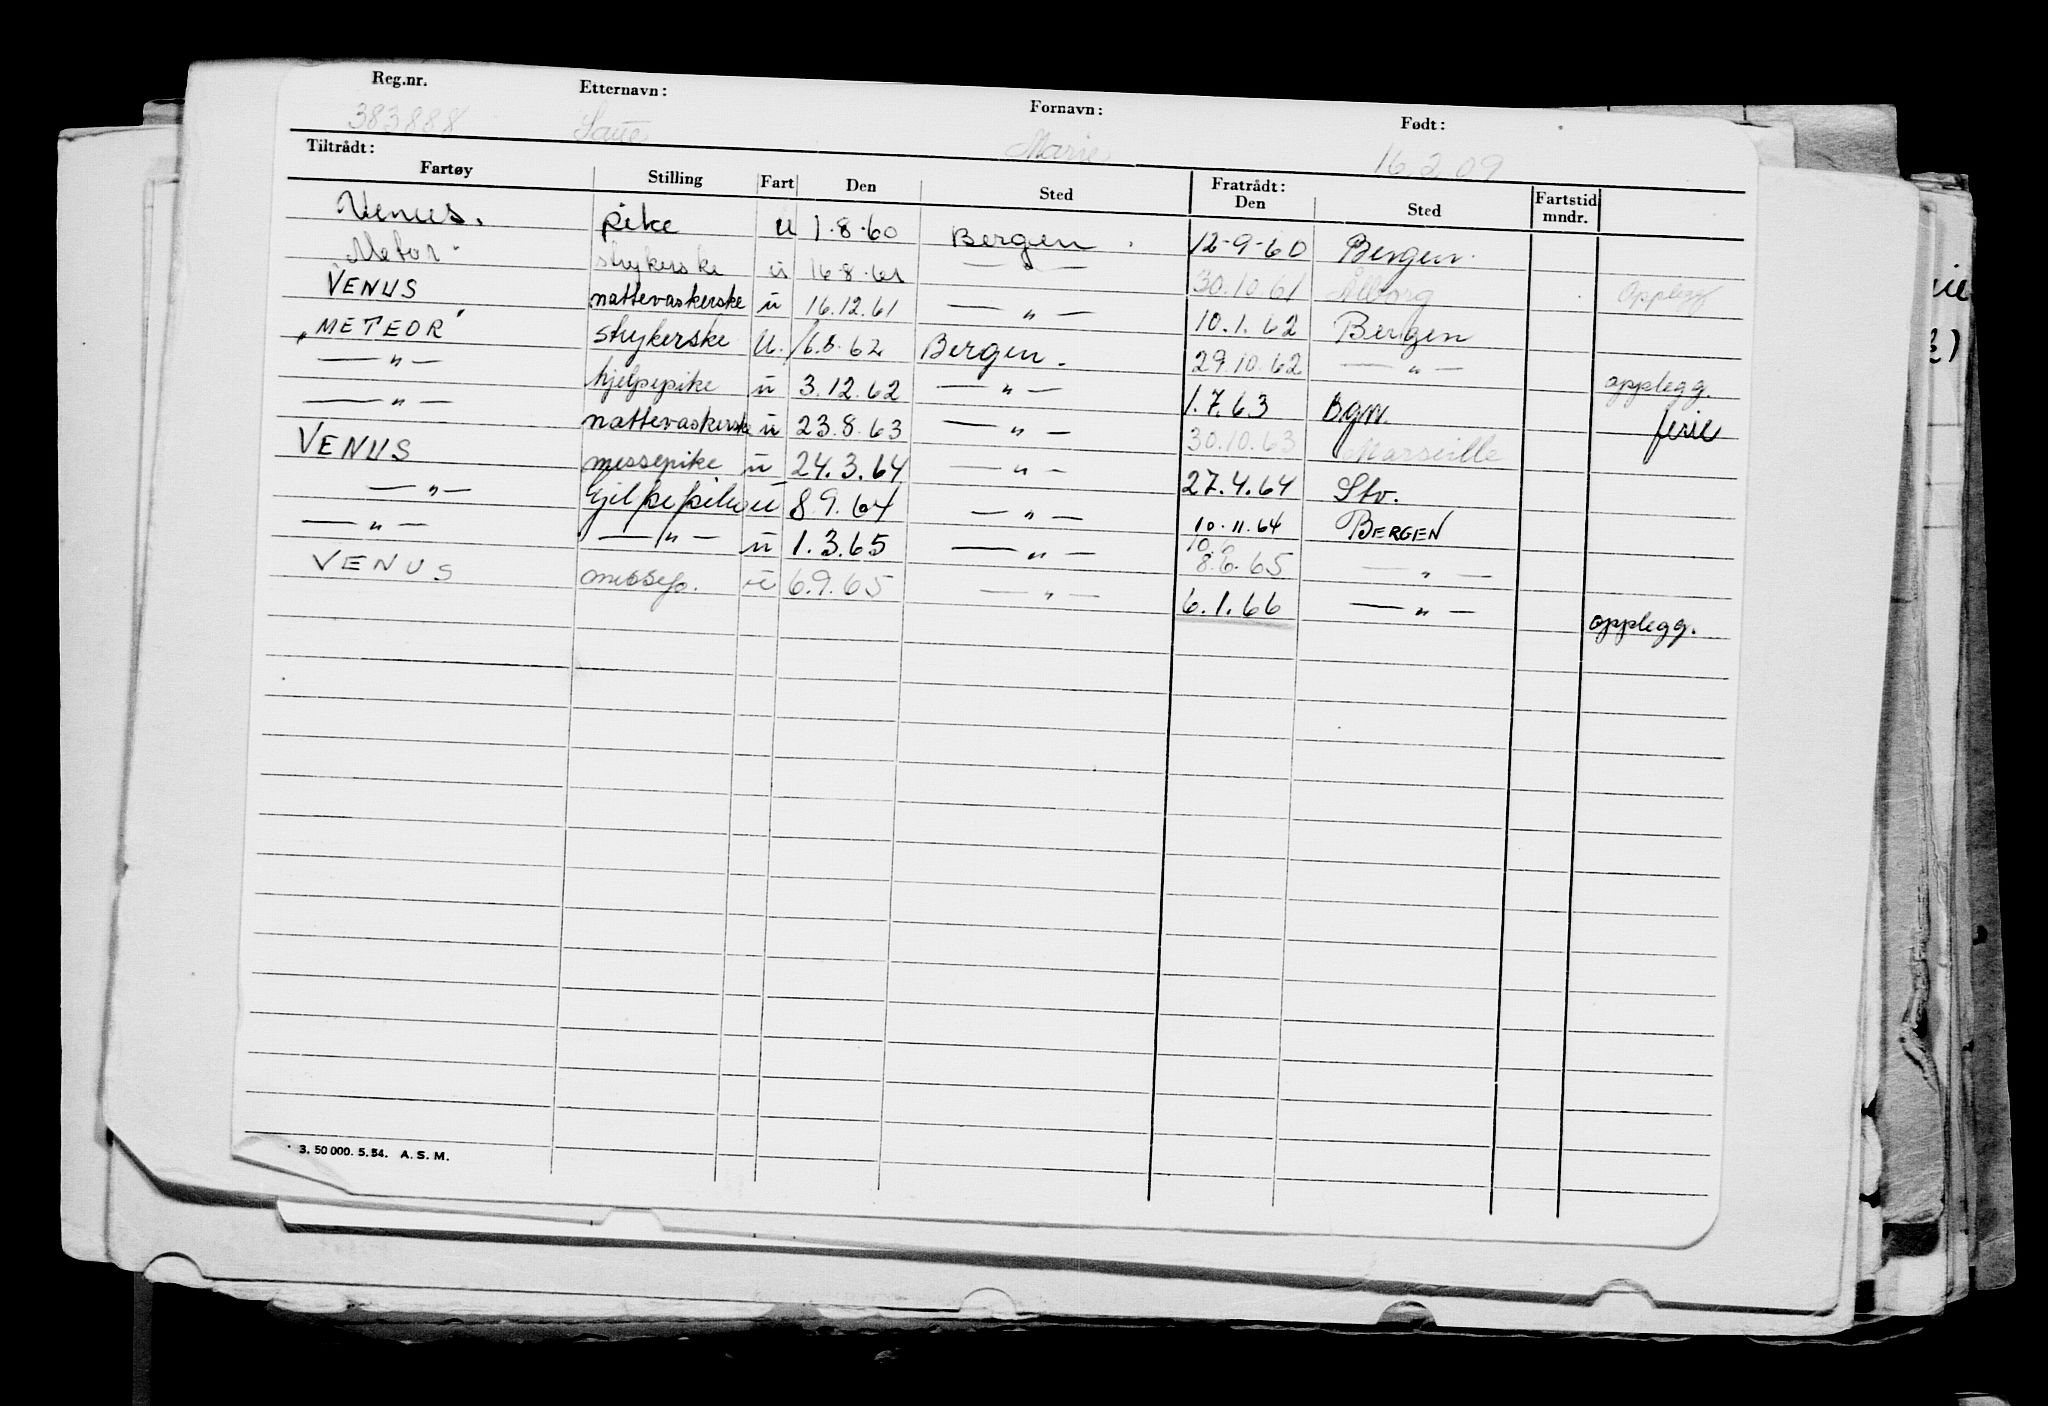 Reg.nr. Etternavn: Fornavn: Født:
383888 Marie 16.2.09
Tiltrådt: Fratrådt:
Fartøy Stilling Fart Den Sted Den Sted Fartstid mndr.
Venus. pike u 1.8.60 Bergen. 12-9-60 Bergen.
Metor. strykerske u 16.8.61 — " — 30.10.61 Ålborg Opplegg
VENUS nattevaskerske u 16.12.61 — " — 10.1.62 Bergen
"METEOR" strykerske U. 16.8.62 Bergen. 29.10.62 — " — opplegg.
— " — hjelpepike u 3.12.62 — " — 1.7.63 Bgn. ferie
— " — nattevaskerske u 23.8.63 — " — 30.10.63 Marseille
VENUS messepike u 24.3.64 — " — 27.4.64 Stv.
— " — hjelpepike u 8.9.64 — " — 10.11.64 BERGEN
— " — — " — u 1.3.65 — " — 10.6 8.6.65 — " —
VENUS messep. u 6.9.65 — " — 6.1.66 — " — opplegg.
3. 50 000. 5. 54. A. S. M.